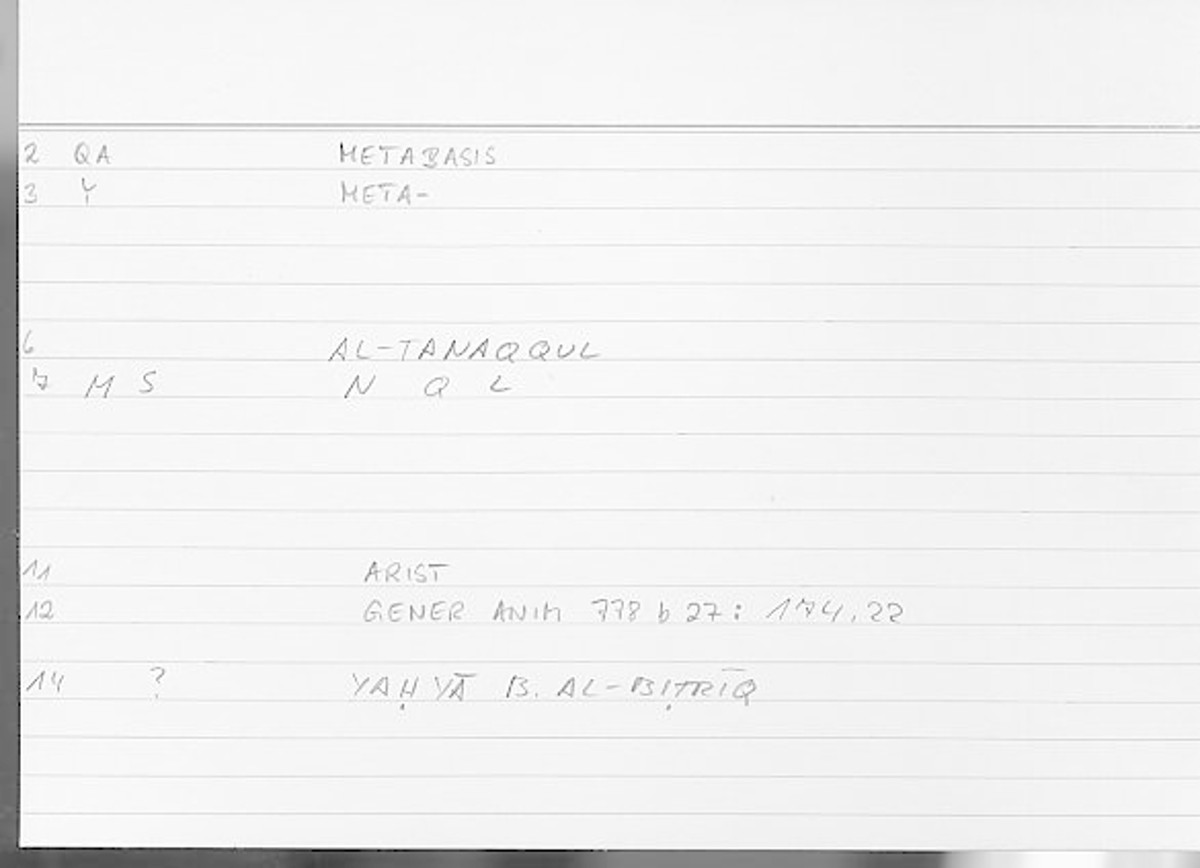 2 QA METABASIS
3 Y META-
6 AL-TANAQQUL
7 M S N Q L
11 ARIST
12 GENER ANIM 778 b 27: 174,22
14 ? YAḤYĀ B. AL-BIṬRĪQ